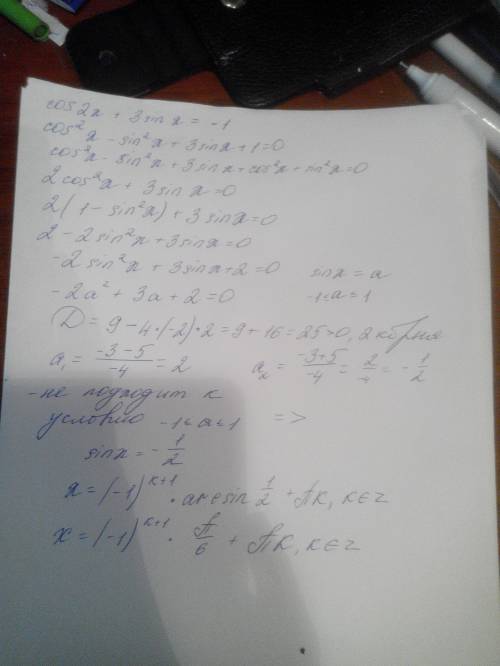 cos2x + 3sinx = -1
cos²x - sin²x + 3sinx + 1 = 0
cos²x - sin²x + 3sinx + cos²x + sin²x = 0
2cos²x + 3sinx = 0
2(1 - sin²x) + 3sinx = 0
2 - 2sin²x + 3sinx = 0
-2sin²x + 3sinx + 2 = 0 sinx = a
-2a² + 3a + 2 = 0 -1≤a≤1
D = 9 - 4·(-2)·2 = 9 + 16 = 25 > 0, 2 корня
a₁ = (-3-5)/-4 = 2 a₂ = (-3+5)/-4 = 2/-4 = -1/2
- не подходит к
условию -1≤a≤1 =>
sinx = -1/2
x = (-1)^(k+1) · arcsin 1/2 + πk, k∈z
x = (-1)^(k+1) · π/6 + πk, k∈z